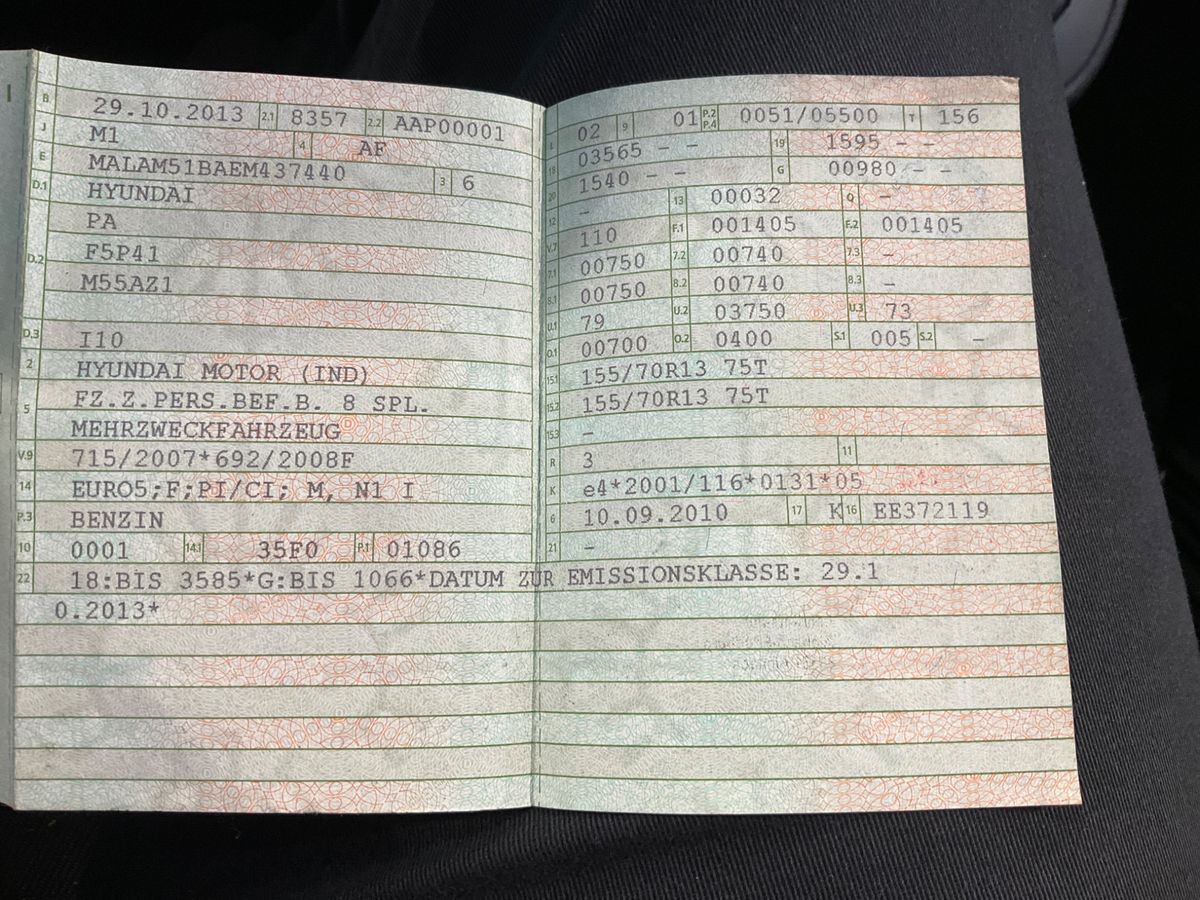 B 29.10.2013 2.1 8357 2.2 AAP00001
J M1 4 AF
E MALAM51BAEM437440 3 6
D.1 HYUNDAI
PA
D.2 F5P41
M55AZ1
D.3 I10
2 HYUNDAI MOTOR (IND)
5 FZ.Z.PERS.BEF.B. 8 SPL.
MEHRZWECKFAHRZEUG
V.9 715/2007*692/2008F
14 EURO5;F;PI/CI; M, N1 I
P.3 BENZIN
10 0001 14.1 35F0 P.1 01086
22 18:BIS 3585*G:BIS 1066*DATUM ZUR EMISSIONSKLASSE: 29.1
0.2013*
L 02 9 01 P.2 P.4 0051/05500 T 156
18 03565 - - 19 1595 - -
20 1540 - - G 00980 - -
12 - 13 00032 Q -
V.7 110 F.1 001405 F.2 001405
7.1 00750 7.2 00740 7.3 -
8.1 00750 8.2 00740 8.3 -
U.1 79 U.2 03750 U.3 73
O.1 00700 O.2 0400 S.1 005 S.2 -
15.1 155/70R13 75T
15.2 155/70R13 75T
15.3 -
R 3 11
K e4*2001/116*0131*05
6 10.09.2010 17 K 16 EE372119
21 -